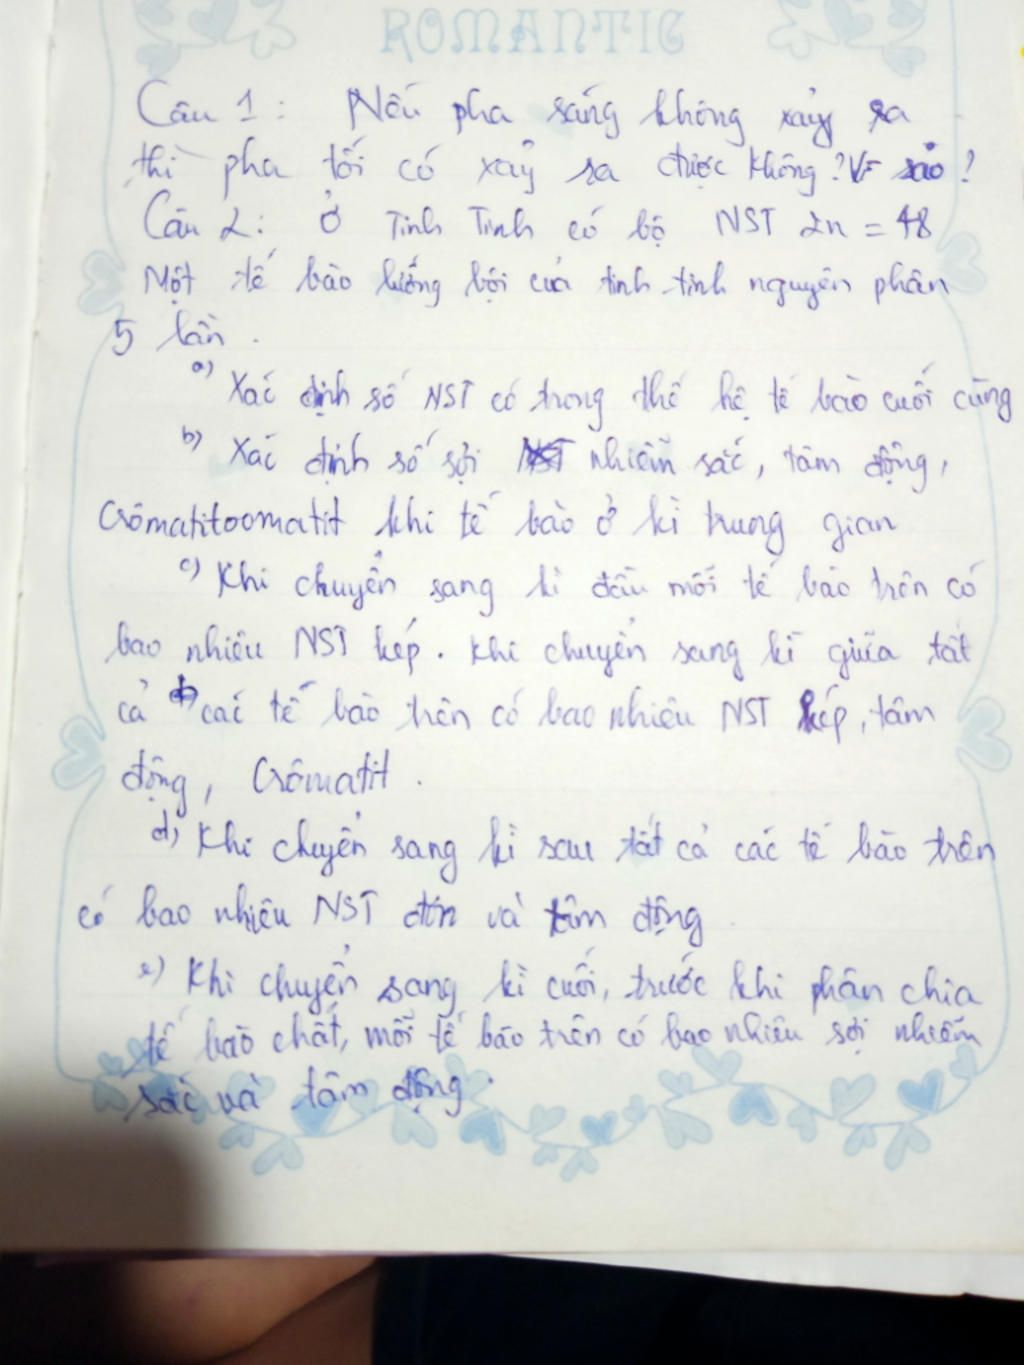 ROMANTIC
Câu 1: Nếu pha sáng không xảy ra
thì pha tối có xảy ra được không? Vì sao?
Câu 2: Ở Tinh Tinh có bộ NST 2n = 48
Một tế bào lưỡng bội của tinh tinh nguyên phân
5 lần.
a) Xác định số NST có trong thế hệ tế bào cuối cùng
b) Xác định số sợi nhiễm sắc, tâm động,
Crômatitoomatit khi tế bào ở kì trung gian
c) Khi chuyển sang kì đầu mỗi tế bào trên có
bao nhiêu NST kép. Khi chuyển sang kì giữa tất
cả các tế bào trên có bao nhiêu NST kép, tâm
động, Crômatit.
d) Khi chuyển sang kì sau tất cả các tế bào trên
có bao nhiêu NST đơn và tâm động
e) Khi chuyển sang kì cuối, trước khi phân chia
tế bào chất, mỗi tế bào trên có bao nhiêu sợi nhiễm
sắc và tâm động.